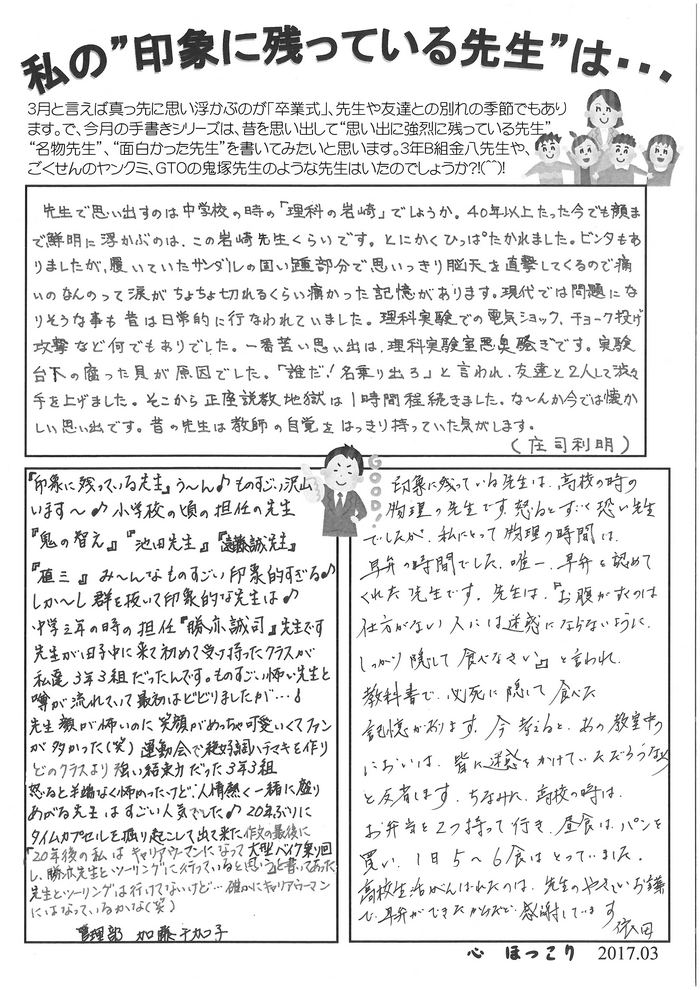 私の”印象に残っている先生”は・・・
3月と言えば真っ先に思い浮かぶのが「卒業式」、先生や友達との別れの季節でもあり
ます。で、今月の手書きシリーズは、昔を思い出して“思い出に強烈に残っている先生”
“名物先生”、“面白かった先生”を書いてみたいと思います。3年B組金八先生や、
ごくせんのヤンクミ、GTOの鬼塚先生のような先生はいたのでしょうか?!(^^)!
先生で思い出すのは中学校の時の「理科の岩崎」でしょうか。40年以上たった今でも顔ま
で鮮明に浮かぶのは、この岩崎先生くらいです。とにかくひっぱたかれました。ビンタもあ
りましたが、履いていたサンダルの固い踵部分で思いっきり脳天を直撃してくるので痛
いのなんのって涙がちょちょ切れるくらい痛かった記憶があります。現代では問題にな
りそうな事も昔は日常的に行なわれていました。理科実験での電気ショック、チョーク投げ
攻撃など何でもありでした。一番苦い思い出は、理科実験室悪臭騒ぎです。実験
台下の腐った貝が原因でした。「誰だ!名乗り出ろ」と言われ、友達と2人して渋々
手を上げました。そこから正座説教地獄は1時間程続きました。な〜んか今では懐か
しい思い出です。昔の先生は教師の自覚をはっきり持っていた気がします。
(庄司利明)
GOOD!
『印象に残っている先生』う〜ん♪ものすごい沢山
います〜♪小学校の頃の担任の先生
『鬼の智え』『池田先生』『遠藤誠先生』
『植三』み〜んなものすごい印象的すぎる♪
しか〜し群を抜いて印象的な先生は♪
中学三年の時の担任『勝亦誠司』先生です
先生が田子中に来て初めて受け持ったクラスが
私達3年3組だったんです。ものすごい怖い先生と
噂が流れていて最初はビビりましたが…!
先生顔が怖いのに笑顔がめっちゃ可愛いくてファン
が多かった(笑)運動会で絶好調ハチマキを作り
どのクラスより強い結束力だった3年3組
怒ると半端なく怖かったけど、人情熱く一緒に盛り
あがる先生はすごい人気でした♪20年ぶりに
タイムカプセルを掘り起こして出て来た作文の最後に
「20年後の私はキャリアウーマンになって大型バイク乗り回
し、勝亦先生とツーリングに行っていると思う」と書いてあった
先生とツーリングは行けてないけど…確かにキャリアウーマン
にはなっているかな(笑)
管理部 加藤千加子
印象に残っている先生は、高校の時の
物理の先生です。怒るとすごく恐い先生
でしたが、私にとって物理の時間は、
早弁の時間でした。唯一、早弁を認めて
くれた先生です。先生は、『お腹がすくのは
仕方がない人には迷惑にならないように、
しっかり隠して食べなさい』と言われ、
教科書で、必死に隠して食べた
記憶があります。今考えると、あの教室中の
においは、皆に迷惑をかけていただろうなぁ
と反省します。ちなみに、高校の時は、
お弁当を2つ持って行き、昼食は、パンを
買い、1日5〜6食はとっていました。
高校生活がんばれたのは、先生のやさしいお言葉
で、早弁ができたからだと、感謝しています
依田
心 ほっこり 2017.03